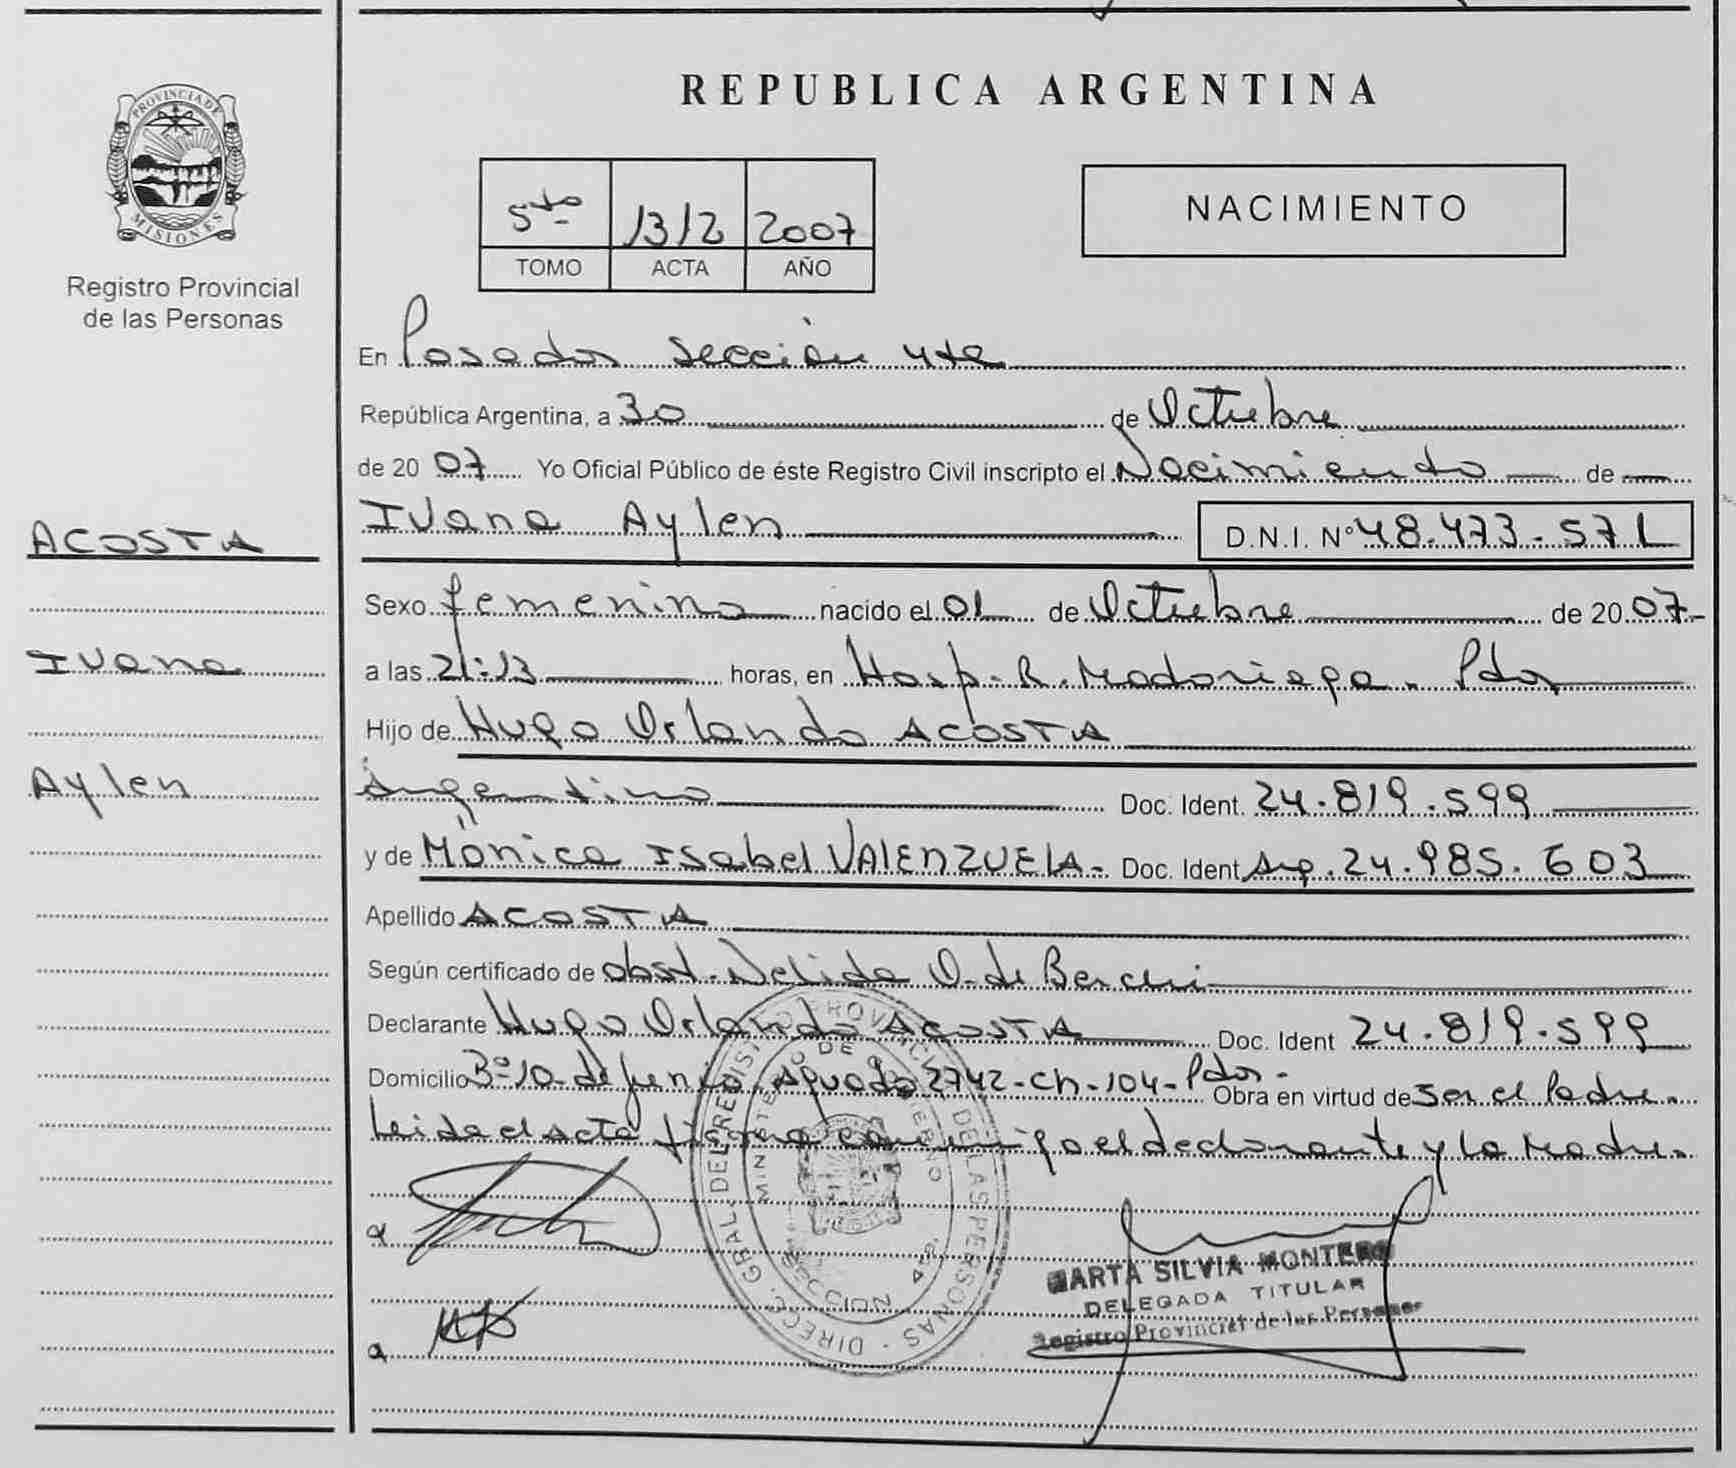 PROVINCIA DE
MISIONES
Registro Provincial
de las Personas
ACOSTA
Ivana
Aylen
REPUBLICA ARGENTINA
5to 1312 2007
TOMO ACTA AÑO
NACIMIENTO
En Posadas sección 4ta
República Argentina, a 30 de Octubre
de 2007 Yo Oficial Público de éste Registro Civil inscripto el Nacimiento de
Ivana Aylen D.N.I. Nº 48.473.571
Sexo femenino nacido el 01 de Octubre de 2007-
a las 21:13 horas, en Hosp. R. Madariaga. Pdas
Hijo de Hugo Orlando ACOSTA
Argentino Doc. Ident. 24.819.599
y de Mónica Isabel VALENZUELA- Doc. Ident Arg. 24.985.603
Apellido ACOSTA
Según certificado de obst. Nelida O. de Berchi
Declarante Hugo Orlando ACOSTA Doc. Ident 24.819.599
Domicilio Bº 10 de junio, Aguado 2742-ch-104-Pdas- Obra en virtud de ser el Padre.
Leida el acta firma conmigo el declarante y la Madre.
DIREC. GRAL. DEL REGISTRO PROVINCIAL DE LAS PERSONAS
MINISTERIO DE GOBIERNO
MARTA SILVIA MONTERO
DELEGADA TITULAR
Registro Provincial de las Personas